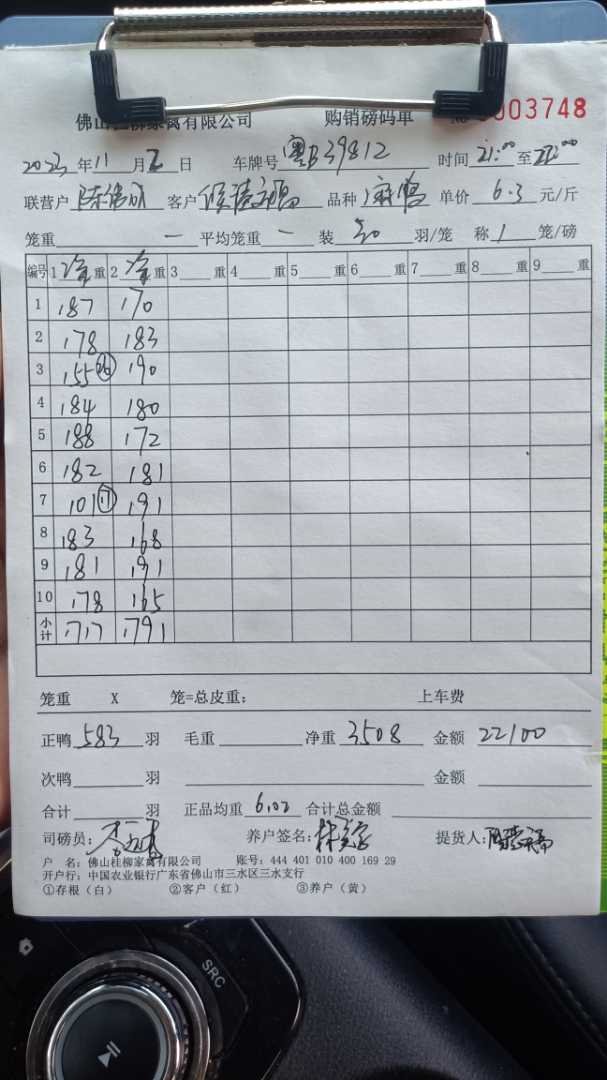 佛山桂柳家禽有限公司 购销磅码单 № 0003748
2023年11月2日 车牌号 粤B39812 时间 21:00 至 22:00
联营户 客户 品种 麻鸭 单价 6.3 元/斤
笼重 一 平均笼重 一 装 30 羽/笼 称 1 笼/磅
编号 1 净重 2 净重 3 重 4 重 5 重 6 重 7 重 8 重 9 重
1 187 170
2 178 183
3 155 190
4 184 180
5 188 172
6 182 181
7 101 (17) 191
8 183 168
9 181 191
10 178 165
小计 1717 1791
笼重 X 笼=总皮重: 上车费
正鸭 583 羽 毛重 净重 3508 金额 22100
次鸭 羽 金额
合计 羽 正品均重 6.02 合计总金额
司磅员: 养户签名: 提货人:
户 名: 佛山桂柳家禽有限公司 账号: 444 401 010 400 169 29
开户行: 中国农业银行广东省佛山市三水区三水支行
①存根(白) ②客户(红) ③养户(黄)
SRC